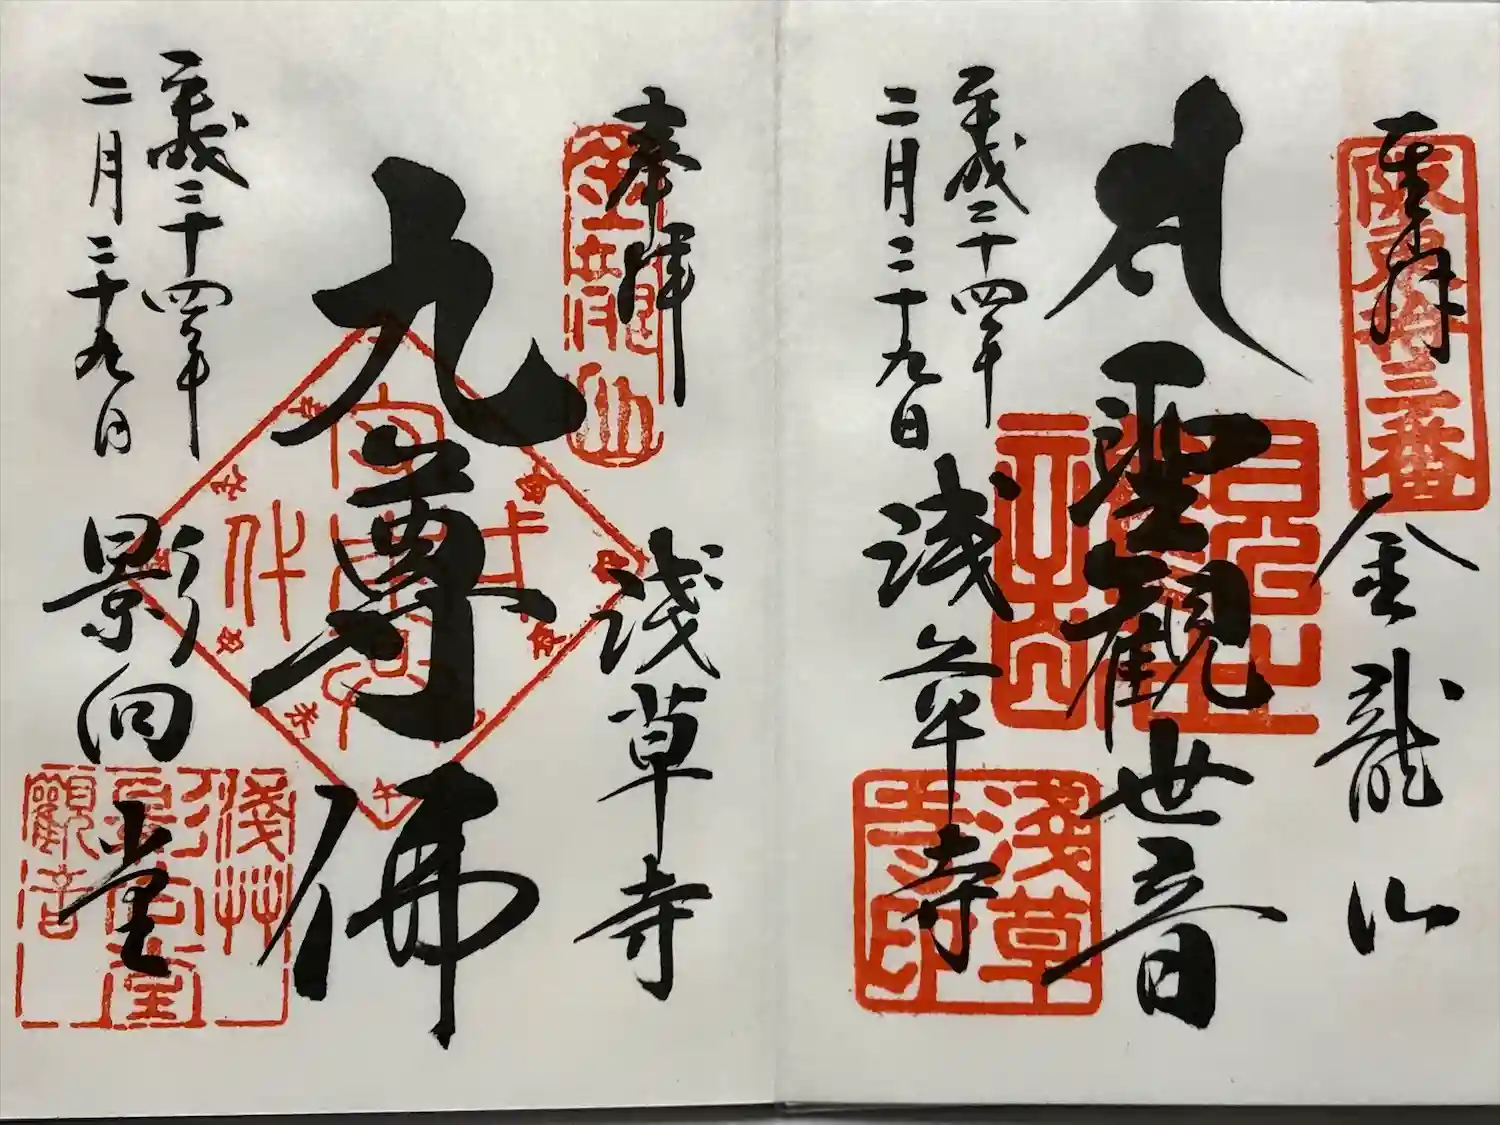 奉拝
坂東拾三番
金龍山
聖観世音
淺草寺
淺草寺印
平成二十四年
二月二十九日
奉拝
金龍山
淺草寺
九尊佛
影向堂
淺艸
影向堂
觀音
平成二十四年
二月二十九日